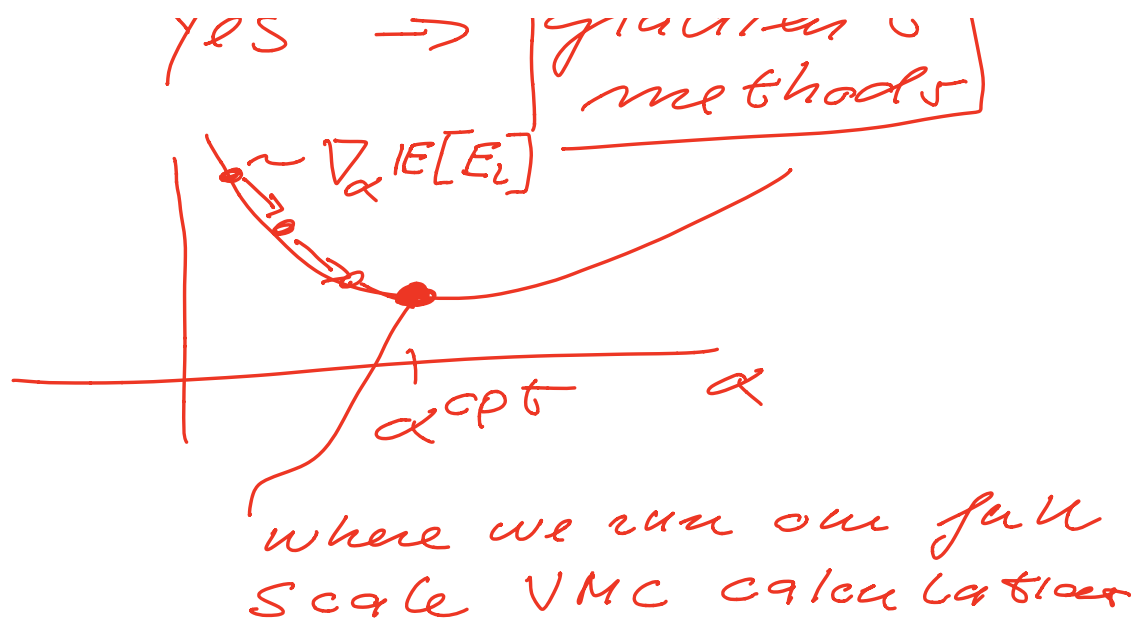 yes →
methods
∇_α 𝔼[E_L]
α
α^opt
where we run our full
scale VMC calculation